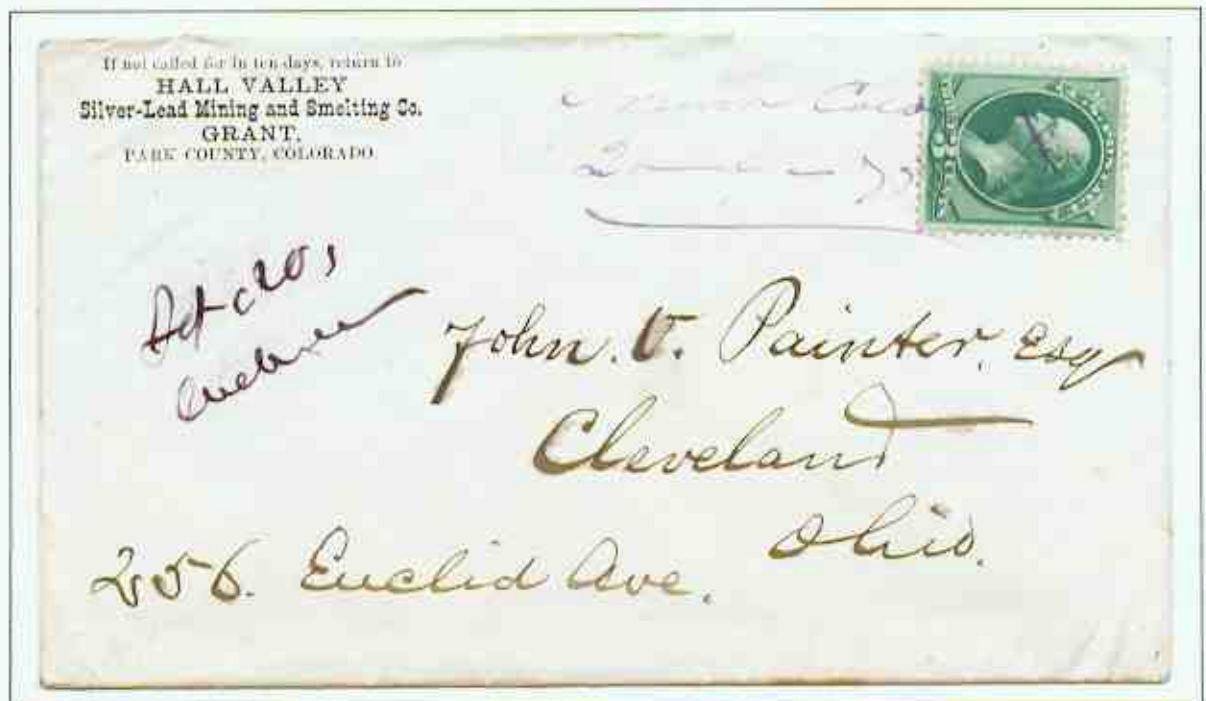 If not called for in ten days, return to
HALL VALLEY
Silver-Lead Mining and Smelting Co.
GRANT,
PARK COUNTY, COLORADO.
John. V. Painter, Esq
Cleveland
Ohio.
256. Euclid Ave.